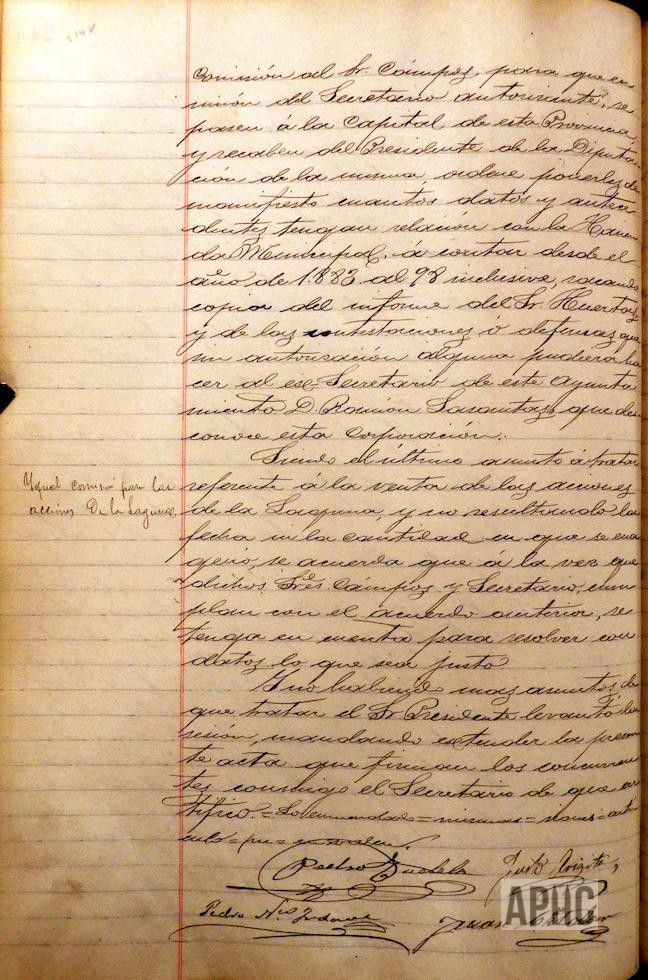 Comisión al Sr. Cámpos, para que en
unión del Secretario autorizante, se
pasen á la Capital de esta Provincia
y recaben del Presidente de la Diputa
ción de la misma, ordene ponerles de
manifiesto cuantos datos y antece
dentes tengan relación con la Hacien
da Municipal, á contar desde el
año de 1.883 al 98 inclusive, sacando
copia del informe del Sr. Huertas,
y de las contestaciones ó defensas que
sin autorización alguna pudiera ha
cer al ex-Secretario de este Ayunta
miento D. Ramón Lasantas, que des
conoce esta Corporación.
Siendo el último asunto á tratar
Ygual comisión para las
referente á la venta de las acciones
acciones De la Laguna.
de la Laguna, y no resultando la
fecha ni la cantidad en que se ena
genó, se acuerda que á la vez que
dichos Sres. Cámpos y Secretario, cum
plan con el acuerdo anterior, se
tenga en cuenta para resolver con
datos lo que sea justo
Y no habiendo mas asuntos de
que tratar el Sr. Presidente levantó la
sesión, mandando extender la presen
te acta que firman los concurren
tes conmigo el Secretario de que cer
tifico.=Sobreenmendado=mismas=
Pedro
Justo
APHC
Pedro
Juan